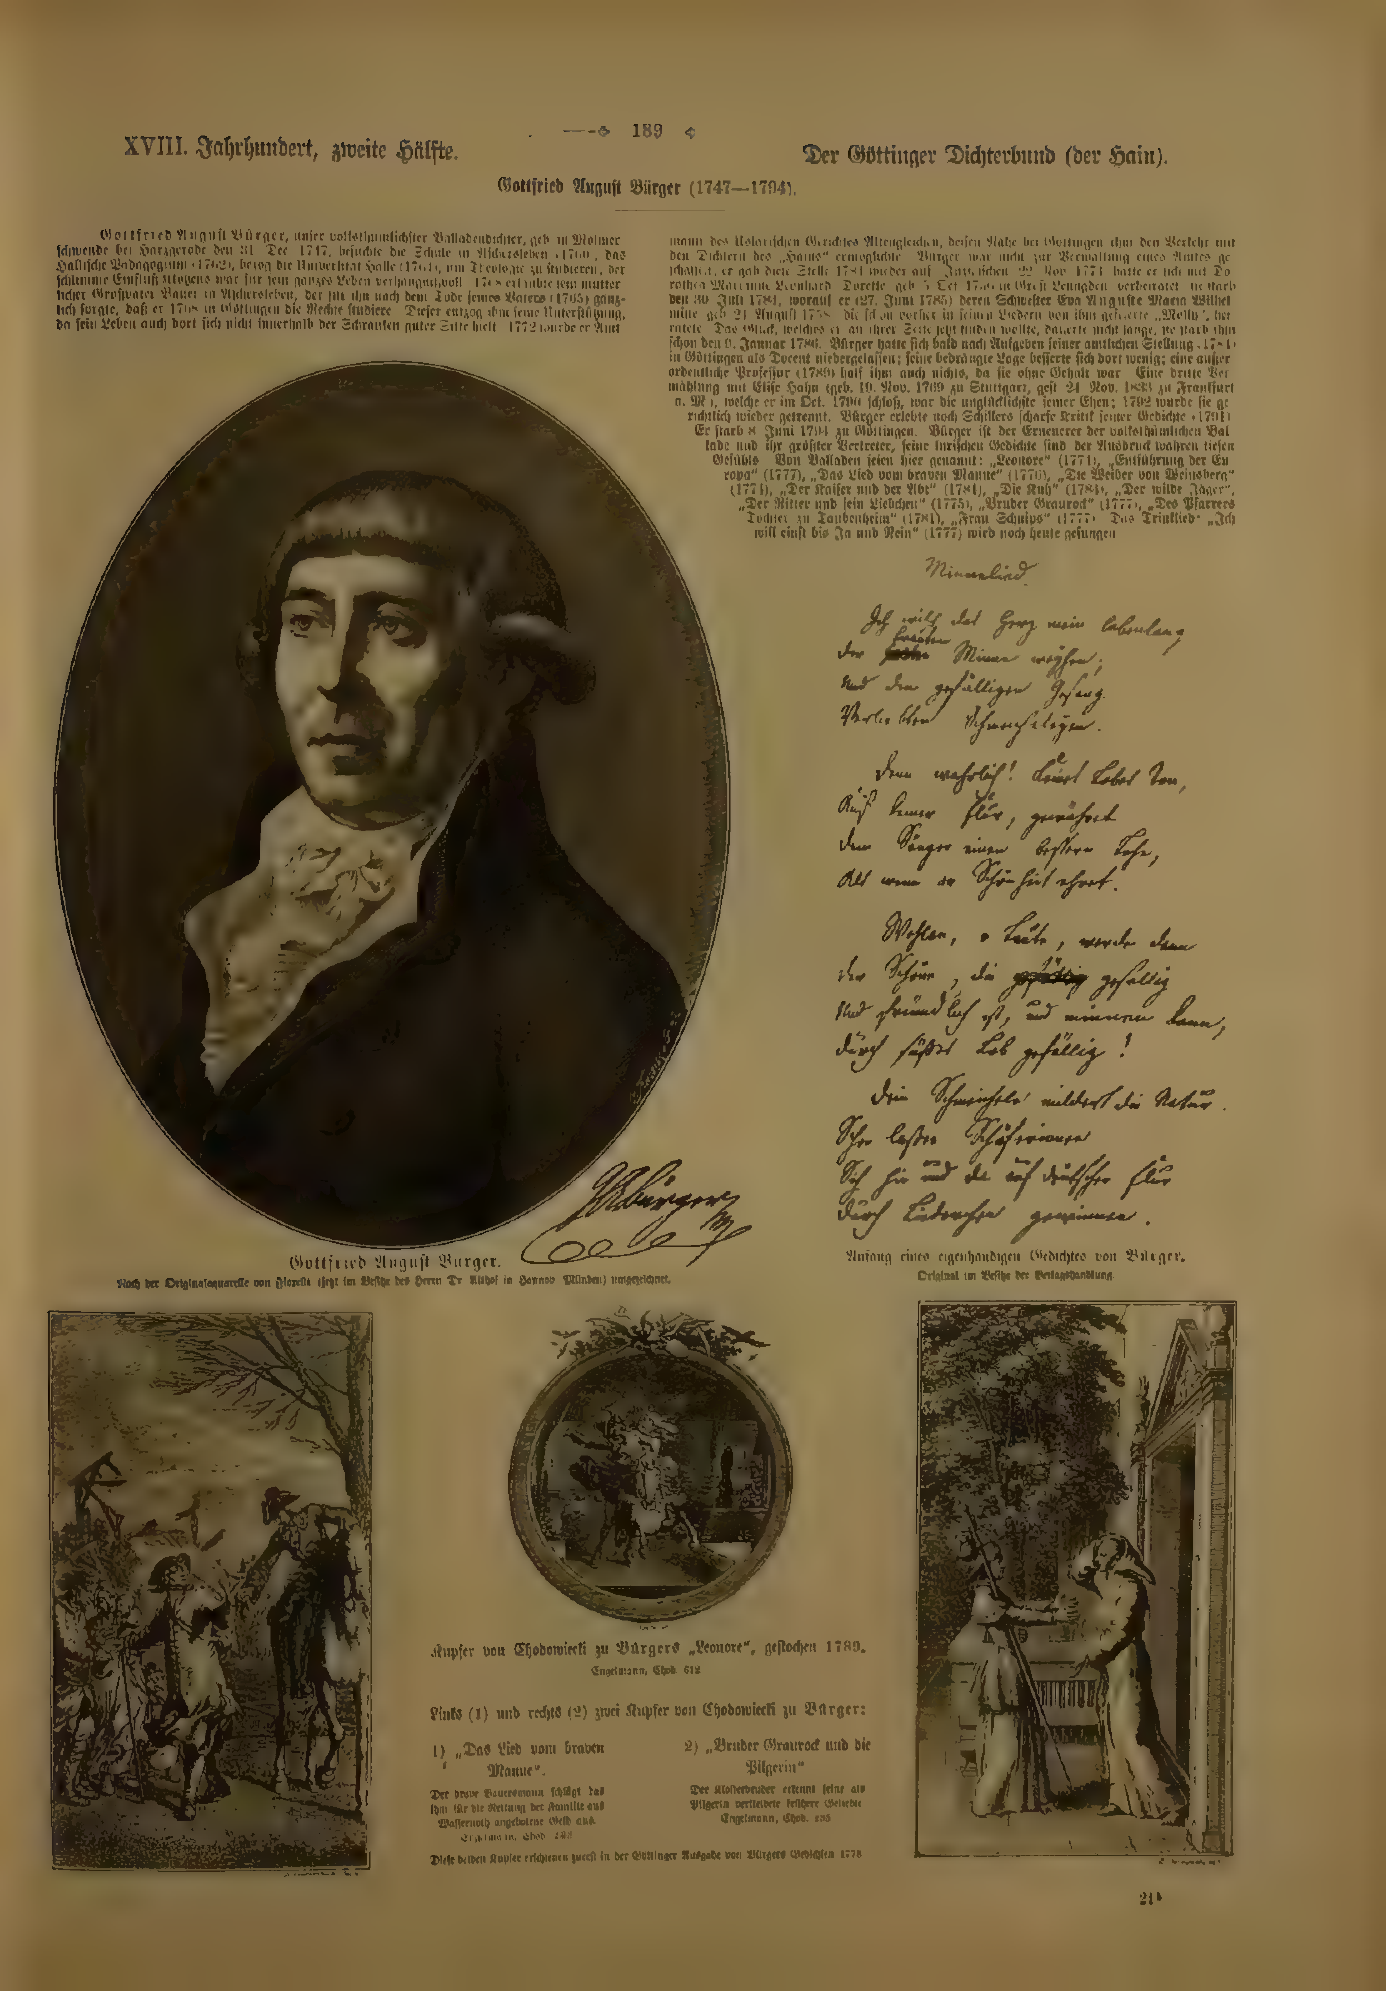 189
XVIII. Jahrhundert, zweite Hälfte.
Der Göttinger Dichterbund (der Hain).
Gottfried August Bürger (1747—1794).
Gottfried August Bürger, unser volksthümlichster Balladendichter, geb. in Molmer
schwende bei Harzgerode den 31. Dec 1747, besuchte die Schule in Aschersleben (1760), das
Hallische Pädagogium (1762), bezog die Universität Halle (1764), um Theologie zu studieren, der
schlimme Einfluß Klotzens war für sein ganzes Leben verhängnißvoll. 1768 erlaubte sein mütter
licher Großvater Bauer in Aschersleben, der für ihn nach dem Tode seines Vaters (1765) gänz-
lich sorgte, daß er 1768 in Göttingen die Rechte studiere. Dieser entzog ihm seine Unterstützung,
da sein Leben auch dort sich nicht innerhalb der Schranken guter Sitte hielt. 1772 wurde er Amt
mann des Uslarischen Gerichtes Altengleichen, dessen Nähe bei Göttingen ihm den Verkehr mit
den Dichtern des „Hains“ ermöglichte. Bürger war nicht zur Verwaltung eines Amtes ge
schaffen, er gab diese Stelle 1784 wieder auf. Inzwischen 22 Nov 1774 hatte er sich mit Do
rothea Marianne Leonhard verheiratet, sie starb
den 30 Juli 1784, worauf er (27. Juni 1785) deren Schwester Eva Auguste Maria Wilhel
mine geb 24 August 1758, die schon vorher in seinen Liedern von ihm gefeierte „Molly“, hei
ratete. Das Glück, welches er an ihrer Seite jetzt finden wollte, dauerte nicht lange, sie starb ihm
schon den 9. Januar 1786. Bürger hatte sich bald nach Aufgeben seiner amtlichen Stellung (1784)
in Göttingen als Docent niedergelassen; seine bedrängte Lage besserte sich dort wenig; eine außer
ordentliche Professur (1789) half ihm auch nichts, da sie ohne Gehalt war. Eine dritte Ver
mählung mit Elise Hahn (geb. 19. Nov. 1769 zu Stuttgart, gest. 24 Nov. 1833 zu Frankfurt
a. M.), welche er im Oct. 1790 schloß, war die unglücklichste seiner Ehen; 1792 wurde sie ge
richtlich wieder getrennt. Bürger erlebte noch Schillers scharfe Kritik seiner Gedichte (1791)
Er starb 8 Juni 1794 zu Göttingen. Bürger ist der Erneuerer der volksthümlichen Bal
lade und ihr größter Vertreter, seine lyrischen Gedichte sind der Ausdruck wahren tiefen
Gefühls. Von Balladen seien hier genannt: „Leonore“ (1774), „Entführung der Eu
ropa“ (1777), „Das Lied vom braven Manne“ (1776), „Die Weiber von Weinsberg“
(1774), „Der Kaiser und der Abt“ (1784), „Die Kuh“ (1784), „Der wilde Jäger“,
„Der Ritter und sein Liebchen“ (1775), „Bruder Graurock“ (1777), „Des Pfarrers
Tochter zu Taubenheim“ (1781), „Frau Schnips“ (1777). Das Trinklied: „Ich
will einst bis Ja und Nein“ (1777) wird noch heute gesungen
Minnelied.
Ich will das Herz mein lebenlang
der holden Minne weyhen;
Und den gefälligen Gesang
Verliebten Schmeicheleyen.
Denn wahrlich! keines Lobes Ton,
Auf keiner Flur, gewähret
dem Sänger einen bessern Lohn,
Als wenn er Schönheit ehret.
Wohlan, o Laute, werde denn
der Schönen, die gefällig
Und freundlich ist, und minnen kann,
durch süsses Lob gefällig!
Dein Schmeicheln mildert die Natur.
Schon lassen Schäferinnen
Sich hin und da auf deutscher Flur
durch Liederchen gewinnen.
GABürger
Gottfried August Bürger.
Nach der Originalaquarelle von Fiorillo (jetzt im Besitze des Herrn Dr Althof in Hannov. Münden) umgezeichnet.
Anfang eines eigenhändigen Gedichtes von Bürger.
Original im Besitze der Verlagshandlung
Kupfer von Chodowiecki zu Bürgers „Leonore“, gestochen 1789.
Engelmann, Chod. 612
Links (1) und rechts (2) zwei Kupfer von Chodowiecki zu Bürger:
1) „Das Lied vom braven
Manne“.
Der brave Bauersmann schlägt das
ihm für die Rettung der Familie aus
Wassernoth angebotene Geld aus.
Engelmann, Chod.
2) „Bruder Graurock und die
Pilgerin“
Der Klosterbruder erkennt seine als
Pilgerin verkleidete frühere Geliebte
Engelmann, Chod.
Diese beiden Kupfer erschienen zuerst in der Göttinger Ausgabe von Bürgers Gedichten 1778
21b